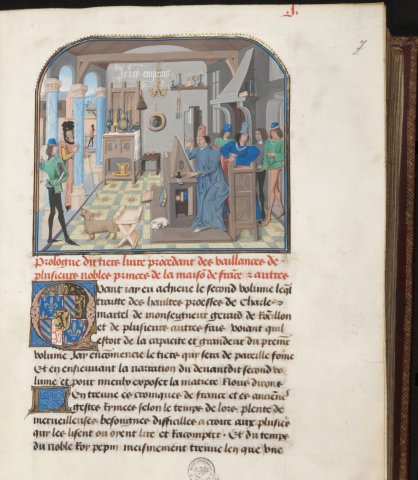 Je l'ay emprins
7
Prologue du tiers livre procedant des vaillances de
plusieurs nobles princes de la maiso de frāce & autres
Quant iay eu achieve le second volume leql
traitte des haultes proesses de Charles
martel de monseigneur gerard de Roussillon
et de plusieurs autres fais voiant quil
estoit de la capacite et grandeur du premier
volume Jay encomencie le tiers qui sera de pareille forme
Et en ensuivant la narration du devantdit second vo
lume et pour mieulx exposer la matiere Nous dirons
On treuve es croniques de france et es anciens
gestes rymees selon le temps de lors plente de
merveilleuses besongnes difficilles a croire aux plusieurs
qui les lisent ou oyent lire et racompter. Et du temps
du noble Roy pepin meismement treuve len que une